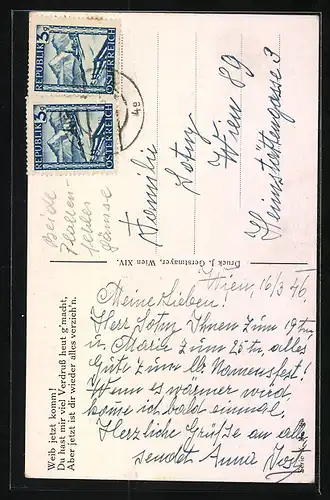 REPUBLIK
ÖSTERREICH
5g
REPUBLIK
ÖSTERREICH
5g
Beide
Platten-
fehler
Familie
Lotny
Wien 89
3
Druck J. Gerstmayer, Wien XIV.
Wien, 16/3 46
Meine Lieben!
Herr Lotny Ihnen zum 19tn,
u. Maria zum 25tn, alles
Gute zum Namensfest!
Wenn es wärmer wird,
komme ich bald einmal.
Herzliche Grüße an alle
sendet Anna
Weib jetzt komm!
Du hast mir viel Verdruß heut g'macht,
Aber jetzt ist dir wieder alles verzieh'n.